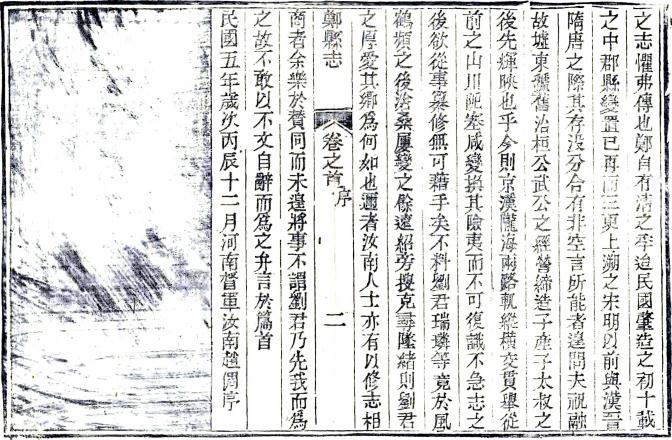 之志懼弗傳也鄭自有清之季迄民國肇造之初十載
之中郡縣變置已再而三更上溯之宋明以前與漢晉
隋唐之際其存没分合有非空言所能者遑問夫祝融
故墟東虢舊治桓公武公之經營締造子產子太叔之
後先輝映也乎今則京漢隴海兩路軌縱橫交貫舉從
前之山川阨塞咸變換其險夷而不可復識不急志之
後欲從事纂修無可藉手矣不料劉君瑞璘等竟於風
鶴頻之後滄桑屢變之餘遠紹旁搜克尋墜緒則劉君
之厚愛其鄉為何如也邇者汝南人士亦有以修志相
鄭縣志 卷之首 序 二
商者余樂於贊同而未遑將事不謂劉君乃先我而為
之故不敢以不文自辭而為之弁言於篇首
民國五年歲次丙辰十二月河南督軍汝南趙倜序